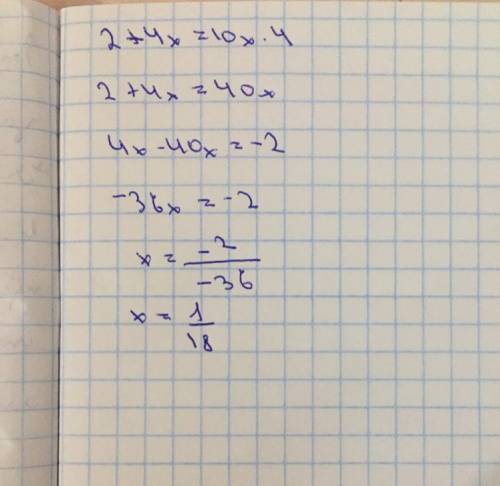 2+4x=10x·4
2+4x=40x
4x-40x=-2
-36x=-2
x=-2/-36
x=1/18